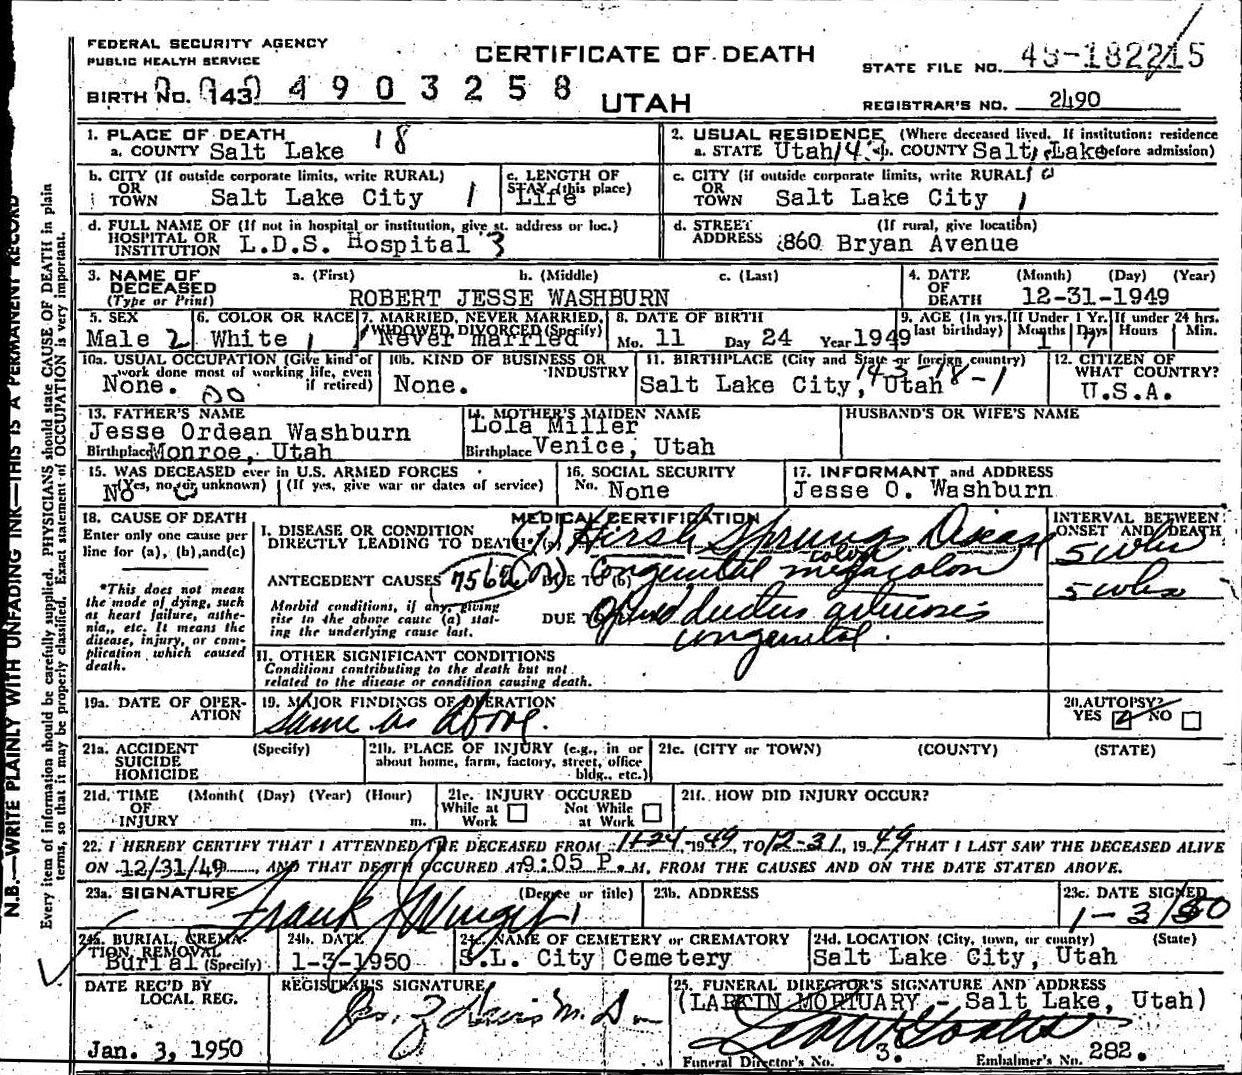 FEDERAL SECURITY AGENCY
PUBLIC HEALTH SERVICE
CERTIFICATE OF DEATH
STATE FILE NO.
BIRTH NO. 143 4903258
UTAH
REGISTRAR'S NO. 2490
1. PLACE OF DEATH
a. COUNTY Salt Lake 18
2. USUAL RESIDENCE (Where deceased lived. If institution: residence
a. STATE Utah b. COUNTY Salt Lake before admission)
b. CITY (If outside corporate limits, write RURAL)
OR
TOWN Salt Lake City 1
c. LENGTH OF
STAY (this place)
Life
c. CITY (if outside corporate limits, write RURAL)
OR
TOWN Salt Lake City 1
d. FULL NAME OF (If not in hospital or institution, give st. address or loc.)
HOSPITAL OR
INSTITUTION L.D.S. Hospital 3
d. STREET (If rural, give location)
ADDRESS 860 Bryan Avenue
3. NAME OF
DECEASED
(Type or Print)
a. (First) b. (Middle) c. (Last)
ROBERT JESSE WASHBURN
4. DATE (Month) (Day) (Year)
OF
DEATH 12-31-1949
5. SEX
Male 2
6. COLOR OR RACE
White 1
7. MARRIED, NEVER MARRIED,
WIDOWED, DIVORCED (Specify)
Never married
8. DATE OF BIRTH
Mo. 11 Day 24 Year 1949
9. AGE (In yrs. last birthday)
If Under 1 Yr.
Months Days
1 7
If under 24 hrs.
Hours Min.
10a. USUAL OCCUPATION (Give kind of
work done most of working life, even
if retired)
None.
10b. KIND OF BUSINESS OR
INDUSTRY
None.
11. BIRTHPLACE (City and State or foreign country)
143-18-1
Salt Lake City, Utah
12. CITIZEN OF
WHAT COUNTRY?
U.S.A.
13. FATHER'S NAME
Jesse Ordean Washburn
Birthplace Monroe, Utah
14. MOTHER'S MAIDEN NAME
Lola Miller
Birthplace Venice, Utah
HUSBAND'S OR WIFE'S NAME
15. WAS DECEASED ever in U.S. ARMED FORCES
(Yes, no, or unknown) (If yes, give war or dates of service)
No
16. SOCIAL SECURITY
No. None
17. INFORMANT and ADDRESS
Jesse O. Washburn
18. CAUSE OF DEATH
Enter only one cause per
line for (a), (b), and (c)
*This does not mean
the mode of dying, such
as heart failure, asthe-
nia,, etc. It means the
disease, injury, or com-
plication which caused
death.
MEDICAL CERTIFICATION
I. DISEASE OR CONDITION
DIRECTLY LEADING TO DEATH* (a) Hirsh Sprungs Disease
colon
ANTECEDENT CAUSES 7562 DUE TO (b) Congenital megacolon
Morbid conditions, if any, giving
rise to the above cause (a) stat-
ing the underlying cause last.
DUE TO ductus arteriosis
congenital.
INTERVAL BETWEEN
ONSET AND DEATH
5 wks
5 wks
II. OTHER SIGNIFICANT CONDITIONS
Conditions contributing to the death but not
related to the disease or condition causing death.
19a. DATE OF OPER-
ATION
19. MAJOR FINDINGS OF OPERATION
same as above.
20. AUTOPSY?
YES NO
21a. ACCIDENT (Specify)
SUICIDE
HOMICIDE
21b. PLACE OF INJURY (e.g., in or
about home, farm, factory, street, office
bldg., etc.)
21c. (CITY or TOWN) (COUNTY) (STATE)
21d. TIME (Month( (Day) (Year) (Hour)
OF
INJURY m.
21e. INJURY OCCURED
While at Work Not While at Work
21f. HOW DID INJURY OCCUR?
22. I HEREBY CERTIFY THAT I ATTENDED THE DECEASED FROM 11-24, 1949, TO 12-31, 1949 THAT I LAST SAW THE DECEASED ALIVE
ON 12/31/49, AND THAT DEATH OCCURED AT 9:05 P.M, FROM THE CAUSES AND ON THE DATE STATED ABOVE.
23a. SIGNATURE (Degree or title)
Frank J Winget
23b. ADDRESS
23c. DATE SIGNED
1-3/50
24a. BURIAL, CREMA-
TION, REMOVAL
Burial (Specify)
24b. DATE
1-3-1950
24c. NAME OF CEMETERY or CREMATORY
S.L. City Cemetery
24d. LOCATION (City, town, or county) (State)
Salt Lake City, Utah
DATE REC'D BY
LOCAL REG.
Jan. 3, 1950
REGISTRAR'S SIGNATURE
25. FUNERAL DIRECTOR'S SIGNATURE AND ADDRESS
(LARKIN MORTUARY - Salt Lake, Utah)
Funeral Director's No. 3. Embalmer's No. 282.
N.B.—WRITE PLAINLY WITH UNFADING INK—THIS IS A PERMANENT RECORD
Every item of information should be carefully supplied. PHYSICIANS should state CAUSE OF DEATH in plain
terms, so that it may be properly classified. Exact statement of OCCUPATION is very important.